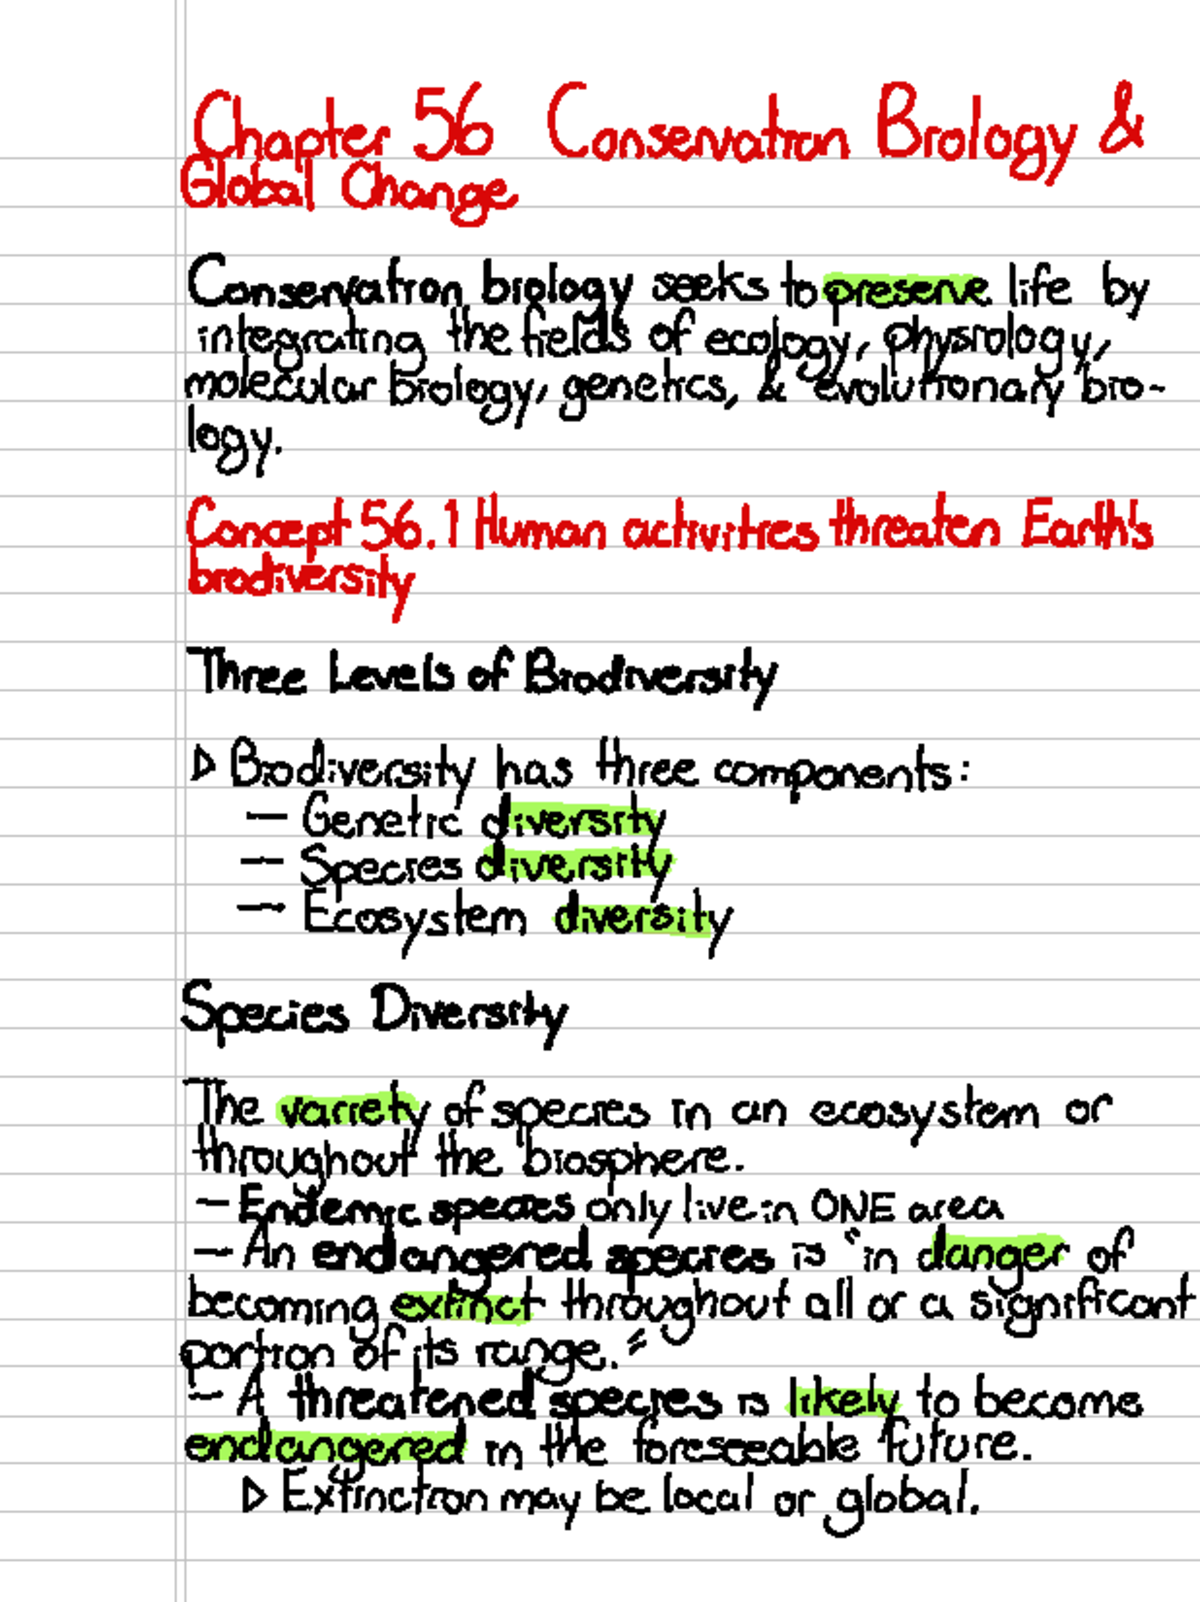 Chapter 56 Conservation Biology &
Global Change
Conservation biology seeks to preserve life by
integrating the fields of ecology, physiology,
molecular biology, genetics, & evolutionary bio-
logy.
Concept 56.1 Human activities threaten Earth's
biodiversity
Three Levels of Biodiversity
▷ Biodiversity has three components:
— Genetic diversity
— Species diversity
— Ecosystem diversity
Species Diversity
The variety of species in an ecosystem or
throughout the biosphere.
— Endemic species only live in ONE area
— An endangered species is "in danger of
becoming extinct throughout all or a significant
portion of its range."
— A threatened species is likely to become
endangered in the foreseeable future.
▷ Extinction may be local or global.